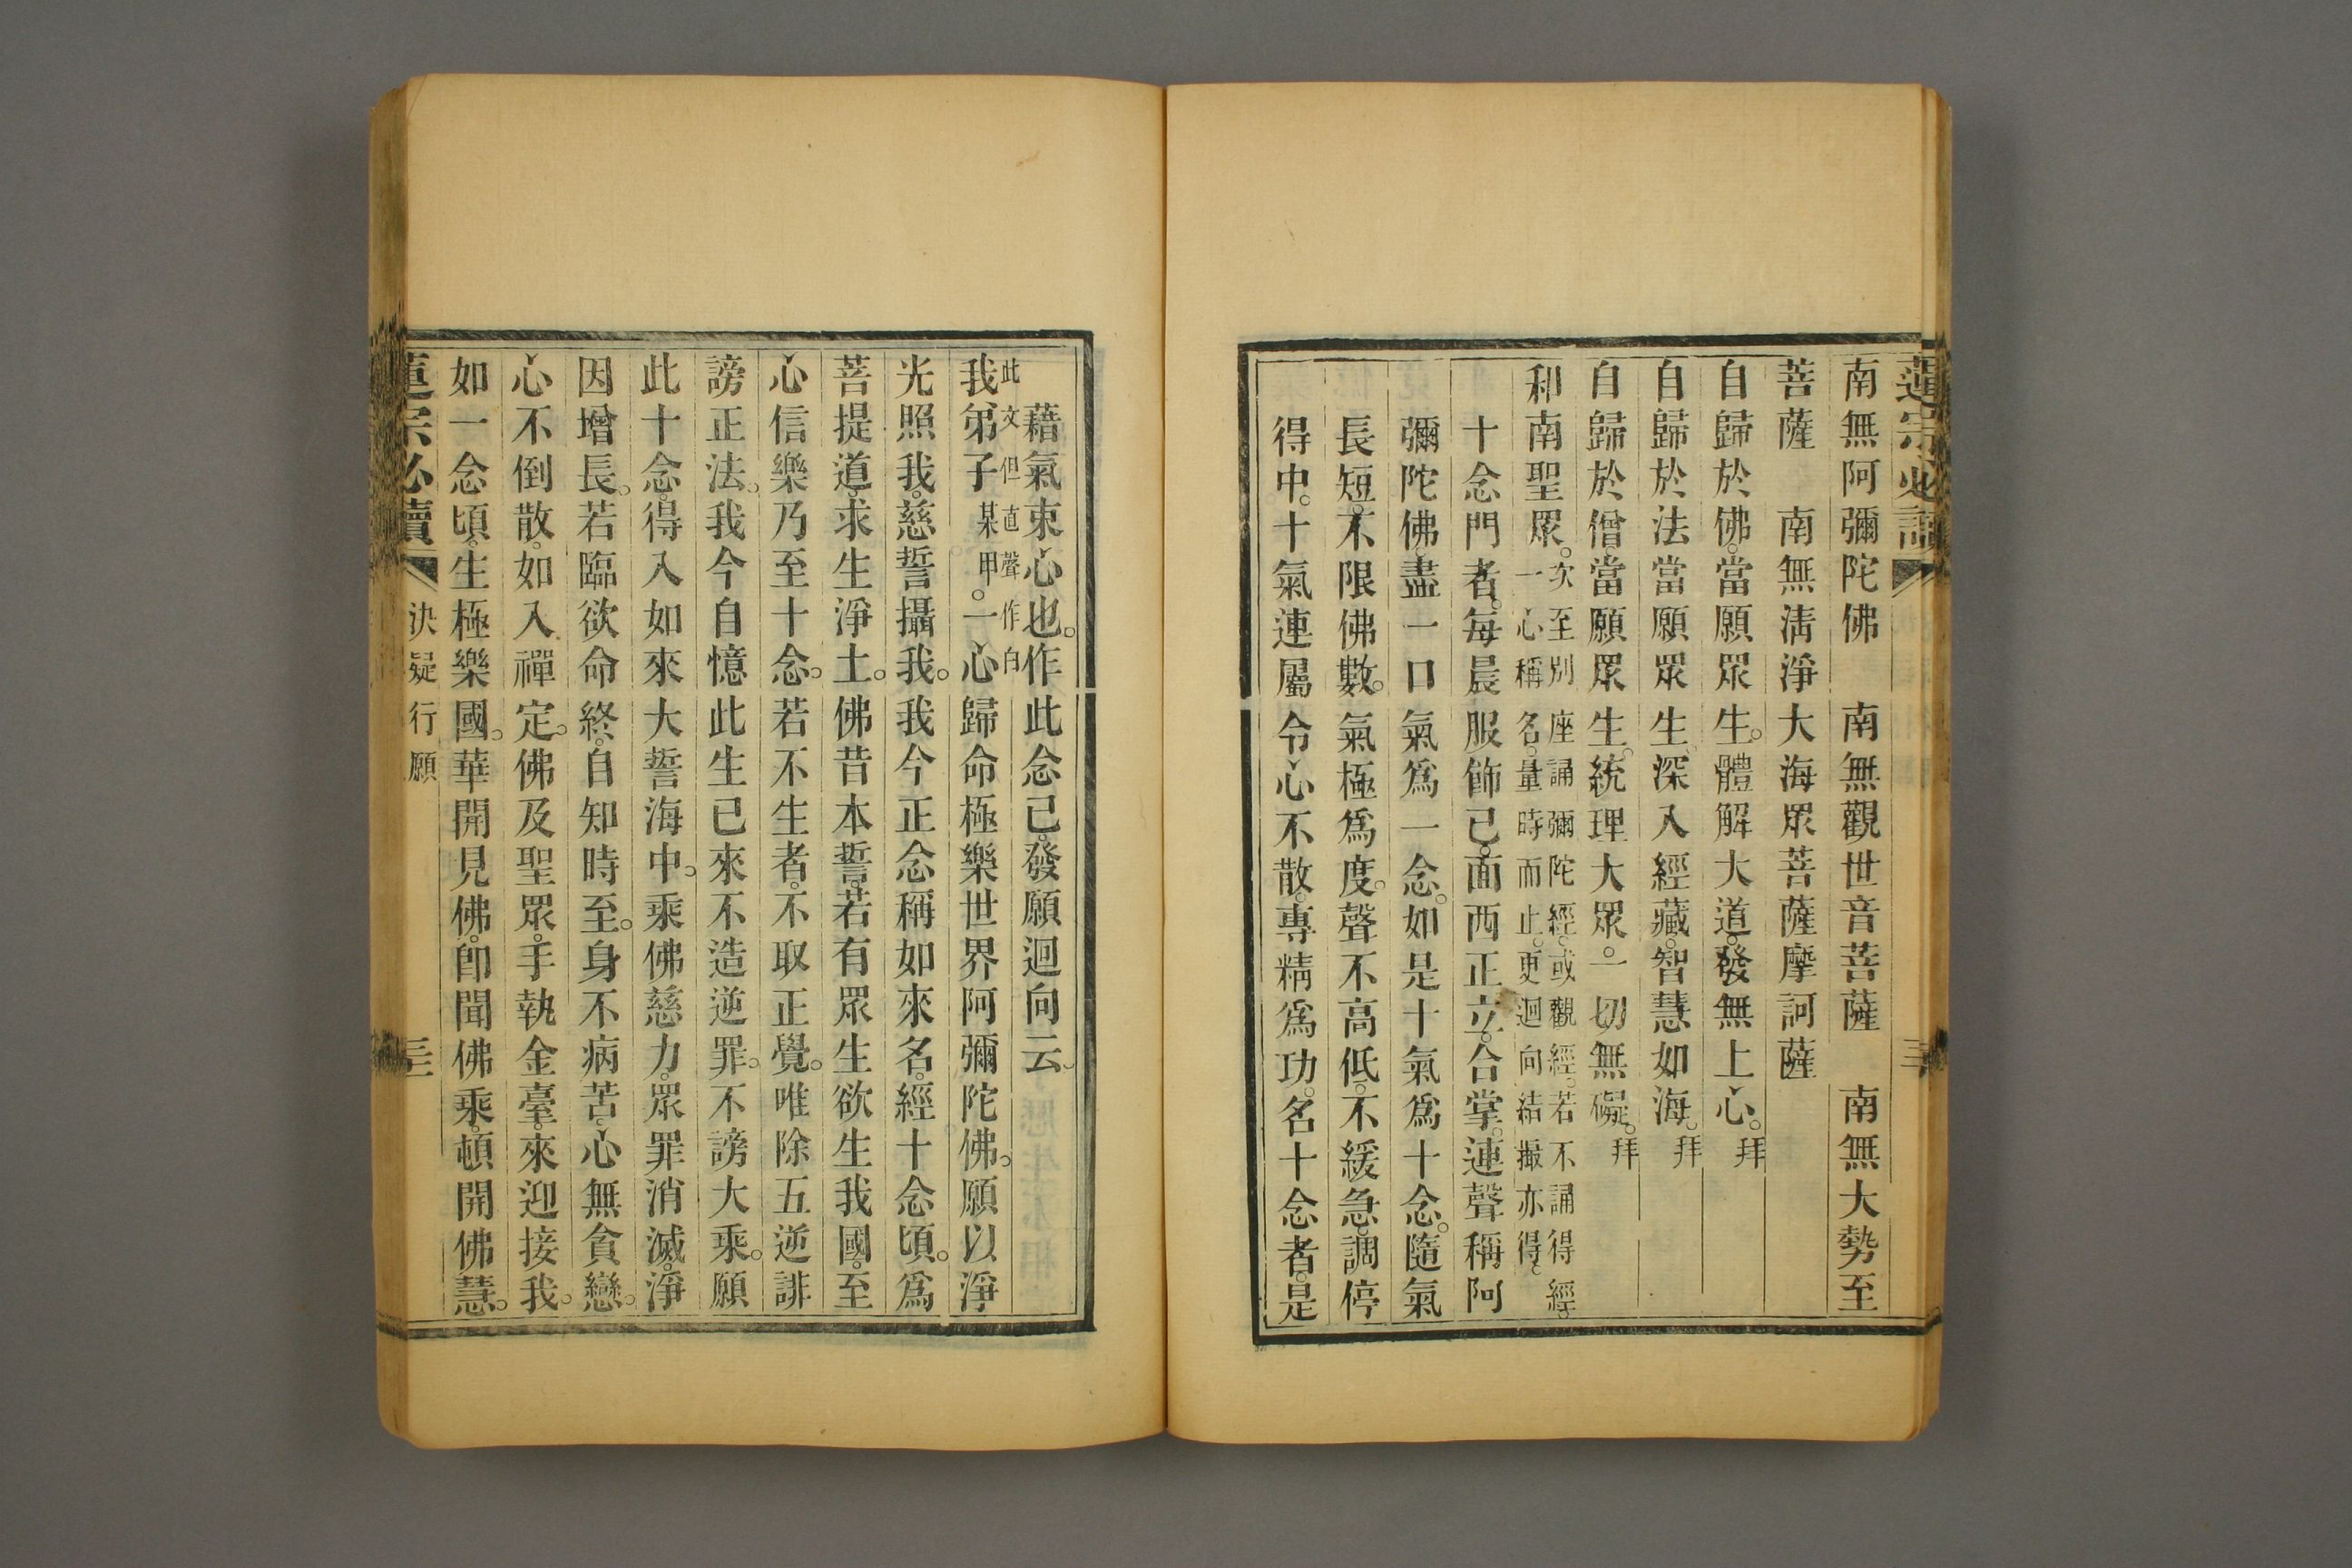 蓮宗必讀
南無阿彌陀佛　南無觀世音菩薩　南無大勢至
菩薩　南無淸淨大海眾菩薩摩訶薩
自歸於佛。當願眾生。體解大道。發無上心。拜
自歸於法。當願眾生。深入經藏。智慧如海。拜
自歸於僧。當願眾生。統理大眾。一切無礙。拜
和南聖眾。次至別座誦彌陀經。或觀經。若不誦得經。
一心稱名。量時而止。更迴向結撮亦得。
十念門者。每晨服飾已。面西正立。合掌。連聲稱阿
彌陀佛。盡一口氣爲一念。如是十氣爲十念。隨氣
長短。不限佛數。氣極爲度。聲不高低。不緩急。調停
得中。十氣連屬令心不散。專精爲功。名十念者。是
藉氣束心也。作此念已。發願迴向云。
此文但直聲作白
我弟子某甲。一心歸命極樂世界阿彌陀佛。願以淨
光照我。慈誓攝我。我今正念稱如來名。經十念頃。爲
菩提道。求生淨土。佛昔本誓。若有眾生欲生我國。至
心信樂乃至十念。若不生者。不取正覺。唯除五逆誹
謗正法。我今自憶此生已來不造逆罪。不謗大乘。願
此十念。得入如來大誓海中。乘佛慈力。眾罪消滅。淨
因增長。若臨欲命終。自知時至。身不病苦。心無貪戀。
心不倒散。如入禪定。佛及聖眾。手執金臺。來迎接我。
如一念頃。生極樂國。華開見佛。卽聞佛乘。頓開佛慧。
蓮宗必讀　決疑行願